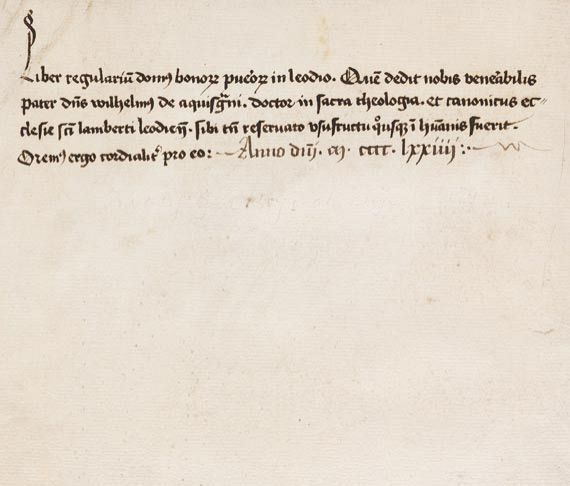 Liber regulariū domꝰ bonoꝝ pueroꝝ in leodio. Quē dedit nobis venerabilis
pater dn̄s wilhelmꝰ de aquisgrani. doctor in sacra theologia. et canonicus ec=
clesie sct̄i lamberti leodien̄. sibi tn̄ reservato vsufructu quousqꝫ ī hūanis fuerit.
Oremꝰ ergo cordialitˀ pro eo: Anno dnī. m. cccc. lxxiiii:.